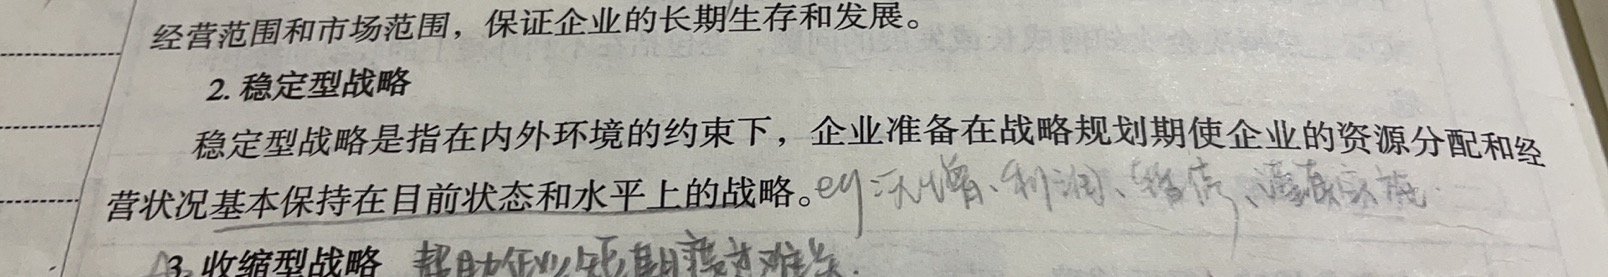 经营范围和市场范围，保证企业的长期生存和发展。
2. 稳定型战略
稳定型战略是指在内外环境的约束下，企业准备在战略规划期使企业的资源分配和经
营状况基本保持在目前状态和水平上的战略。eg 无增、利润、暂停、谨慎实施.
3. 收缩型战略 帮助企业短期渡过难关.